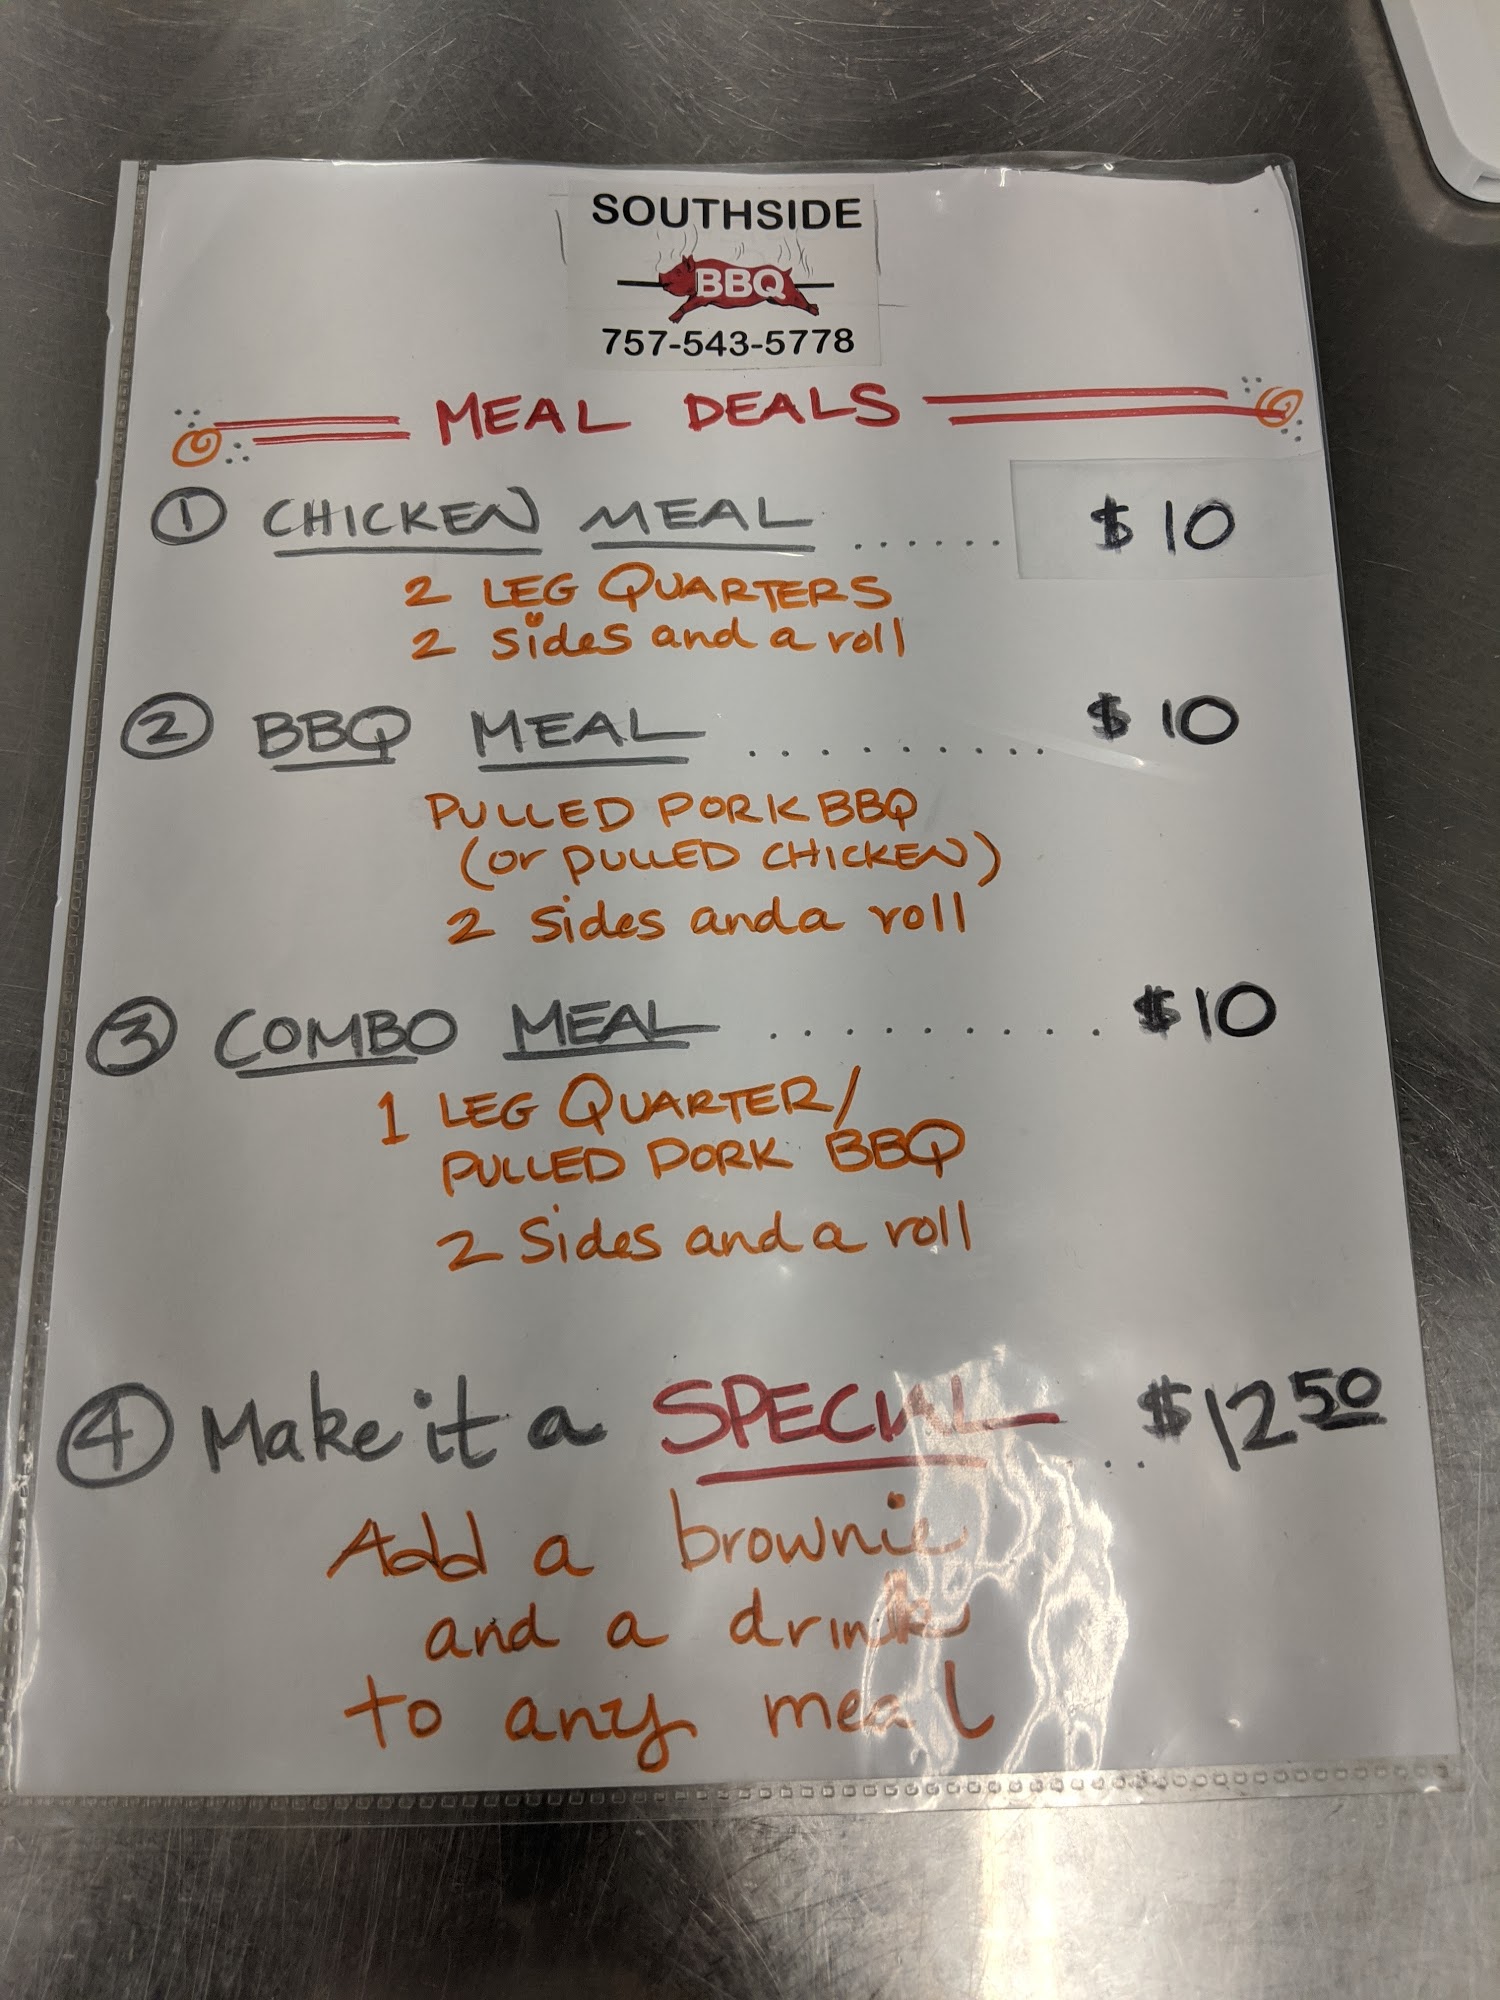 SOUTHSIDE
BBQ
757-543-5778
MEAL DEALS
① CHICKEN MEAL ...... $10
2 LEG QUARTERS
2 sides and a roll
② BBQ MEAL .......... $10
PULLED PORK BBQ
(or PULLED CHICKEN)
2 Sides and a roll
③ COMBO MEAL .......... $10
1 LEG QUARTER/
PULLED PORK BBQ
2 Sides and a roll
④ Make it a SPECIAL ... $12 50
Add a brownie
and a drink
to any meal